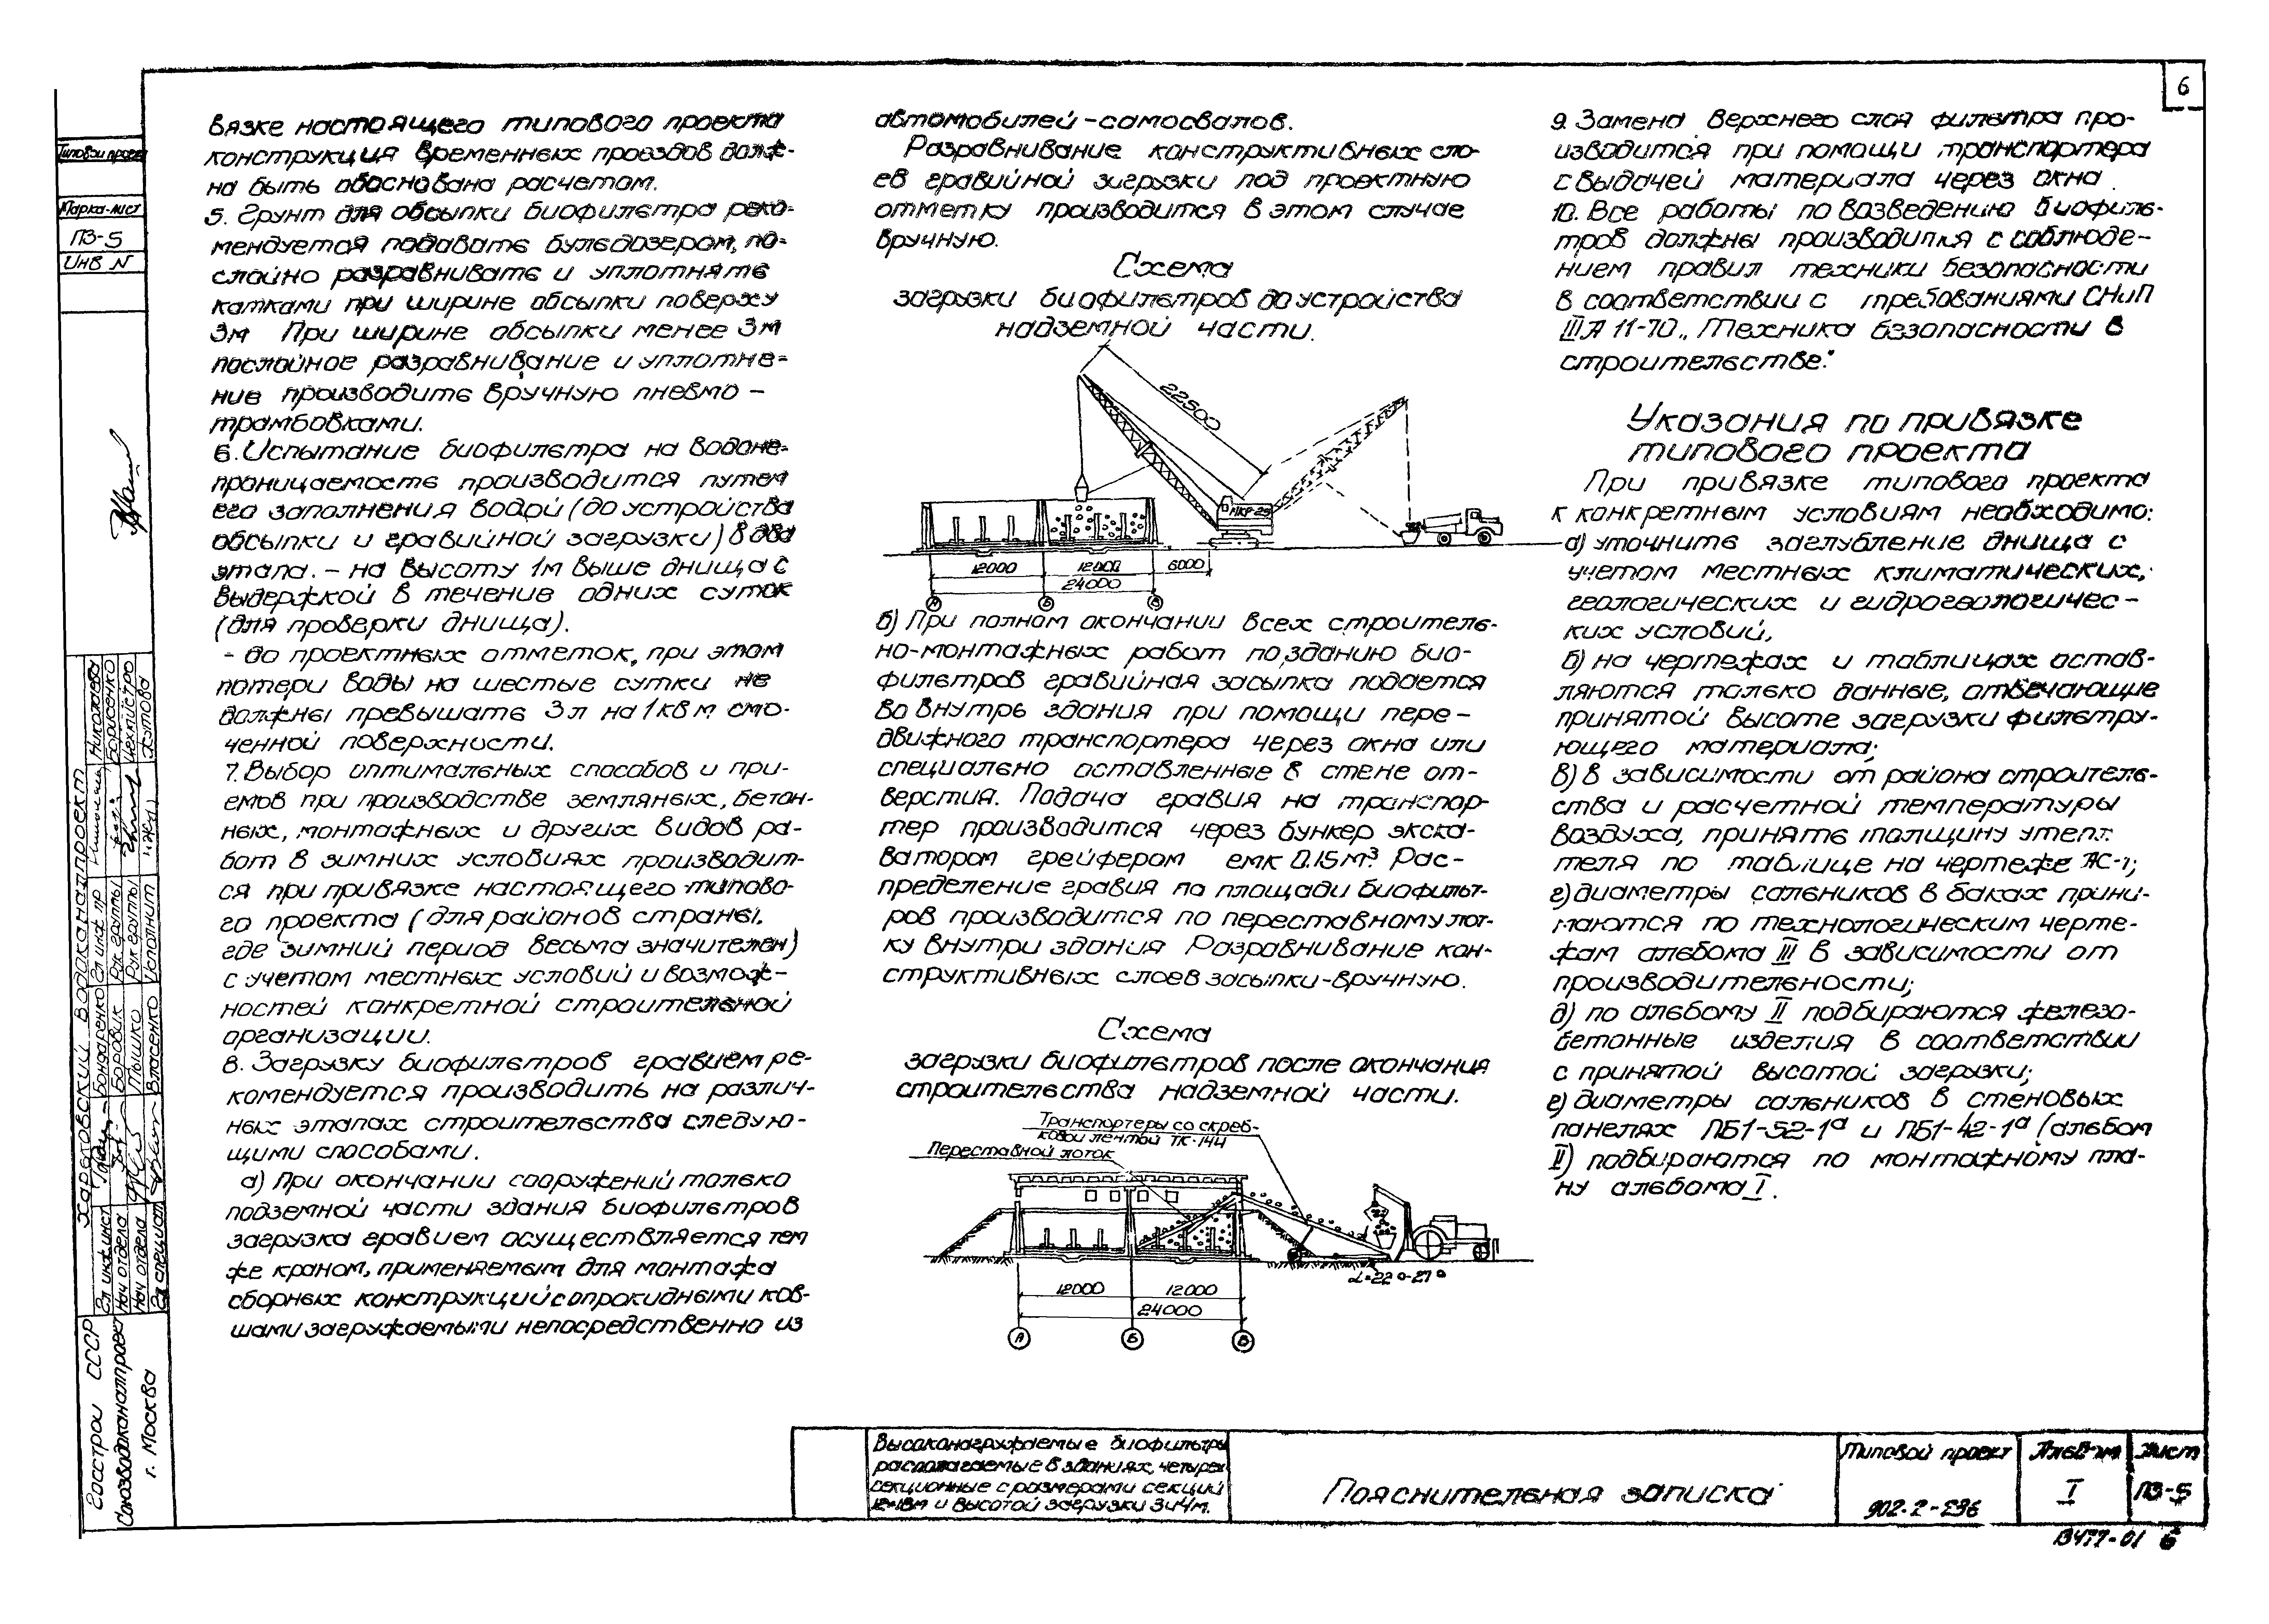 6
вязке настоящего типового проекта
конструкция временных проездов долж-
на быть обоснована расчетом.
5. Грунт для обсыпки биофильтра реко-
мендуется подавать бульдозером, по-
слойно разравнивать и уплотнять
катками при ширине обсыпки поверху
3м При ширине обсыпки менее 3м
послойное разравнивание и уплотне-
ние производить вручную пневмо-
трамбовками.
6. Испытание биофильтра на водоне-
проницаемость производится путем
его заполнения водой (до устройства
обсыпки и гравийной загрузки) в два
этапа. - на высоту 1м выше днища с
выдержкой в течение одних суток
(для проверки днища).
- до проектных отметок, при этом
потери воды на шестые сутки не
должны превышать 3л на 1кв м смо-
ченной поверхности.
7. Выбор оптимальных способов и при-
емов при производстве земляных, бетон-
ных, монтажных и других видов ра-
бот в зимних условиях производит-
ся при привязке настоящего типово-
го проекта (для районов страны,
где зимний период весьма значителен)
с учетом местных условий и возмож-
ностей конкретной строительной
организации.
8. Загрузку биофильтров гравием ре-
комендуется производить на различ-
ных этапах строительства следую-
щими способами.
а) При окончании сооружений только
подземной части здания биофильтров
загрузка гравием осуществляется тем
же краном, применяемым для монтажа
сборных конструкций с опрокидными ков-
шами загружаемыми непосредственно из
автомобилей-самосвалов.
Разравнивание конструктивных сло-
ев гравийной загрузки под проектную
отметку производится в этом случае
вручную.
Схема
загрузки биофильтров до устройства
надземной части.
22500
МКГ-25
12000 12000 6000
24000
А Б В
б) При полном окончании всех строитель-
но-монтажных работ по зданию био-
фильтров гравийная засыпка подается
во внутрь здания при помощи пере-
движного транспортера через окна или
специально оставленные в стене от-
верстия. Подача гравия на транспор-
тер производится через бункер экска-
ватором грейфером емк 0.15м³ Рас-
пределение гравия по площади биофильт-
ров производится по переставному лот-
ку внутри здания Разравнивание кон-
структивных слоев засыпки-вручную.
Схема
загрузки биофильтров после окончания
строительства надземной части.
Транспортеры со скреб-
ковой лентой ТК-144
Переставной лоток
α=22°-27°
12000 12000
24000
А Б В
9. Замена верхнего слоя фильтра про-
изводится при помощи транспортера
с выдачей материала через окна.
10. Все работы по возведению биофиль-
тров должны производится с соблюде-
нием правил техники безопасности
в соответствии с требованиями СНиП
III А 11-70 „Техника безопасности в
строительстве."
Указания по привязке
типового проекта
При привязке типового проекта
к конкретным условиям необходимо:
а) уточнить заглубление днища с
учетом местных климатических,
геологических и гидрогеологичес-
ких условий,
б) на чертежах и таблицах остав-
ляются только данные, отвечающие
принятой высоте загрузки фильтру-
ющего материала;
в) в зависимости от района строитель-
ства и расчетной температуры
воздуха, принять толщину утепли-
теля по таблице на чертеже АС-1;
г) диаметры сальников в баках прини-
маются по технологическим черте-
жам альбома III в зависимости от
производительности;
д) по альбому II подбираются железо-
бетонные изделия в соответствии
с принятой высотой загрузки;
е) диаметры сальников в стеновых
панелях ПБ1-52-1а и ПБ1-42-1а (альбом
II) подбираются по монтажному пла-
ну альбома I.
Типовой проект
Марка-лист
ПЗ-5
Инв N
Харьковский Водоканалпроект
Гл инж инст Бондаренко Гл инж пр Николаева
Нач отдела Боровик Рук группы Борисенко
Нач отдела Мышко Рук группы
Гл специал Власенко Исполнит
Госстрой СССР
Союзводоканалпроект
г. Москва
Высоконагружаемые биофильтры
располагаемые в зданиях, четырех
секционные с размерами секций
12×18м и высотой загрузки 3и4м.
Пояснительная записка
Типовой проект
902-2-296
Альбом
I
Лист
ПЗ-5
13477-01 6